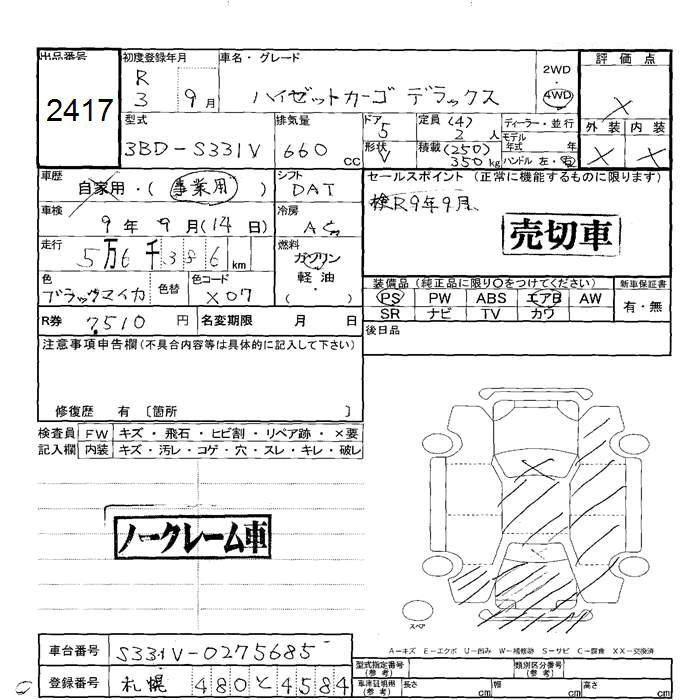 出品番号
2417
初度登録年月
R
3 9月
車名・グレード
ハイゼットカーゴ デラックス
2WD
・
4WD
評価点
×
外装 内装
× ×
型式
3BD-S331V
排気量
660 cc
ドア
5
形状
V
定員 (4)
2 人
積載 (250)
350 kg
ディーラー・並行
モデル
年式 年
ハンドル 左・右
車歴
自家用・(事業用)
シフト
DAT
セールスポイント (正常に機能するものに限ります)
検R9年9月
売切車
車検
9年 9月(14日)
冷房
AC
走行
5万6千386km
燃料
ガソリン
軽・油
( )
色
ブラックマイカ
色替
色コード
X07
装備品 (純正品に限り〇をつけてください) 新車保証書
PS PW ABS エアB AW 有・無
SR ナビ TV カワ
R券 7510円 名変期限 月 日
後日品
注意事項申告欄(不具合内容等は具体的に記入して下さい)
修復歴 有 〔箇所 〕
検査員 FW キズ・飛石・ヒビ割・リペア跡・×要
記入欄 内装 キズ・汚レ・コゲ・穴・スレ・キレ・破レ
ノークレーム車
スペア
A−キズ E−エクボ U−凹み W−補修跡 S−サビ C−腐食 XX−交換済
車台番号 S331V-0275685
登録番号 札幌 480 と 4584
型式指定番号
(参考)
類別区分番号
(参考)
車庫証明用
(参考)
長さ cm 幅 cm 高さ cm